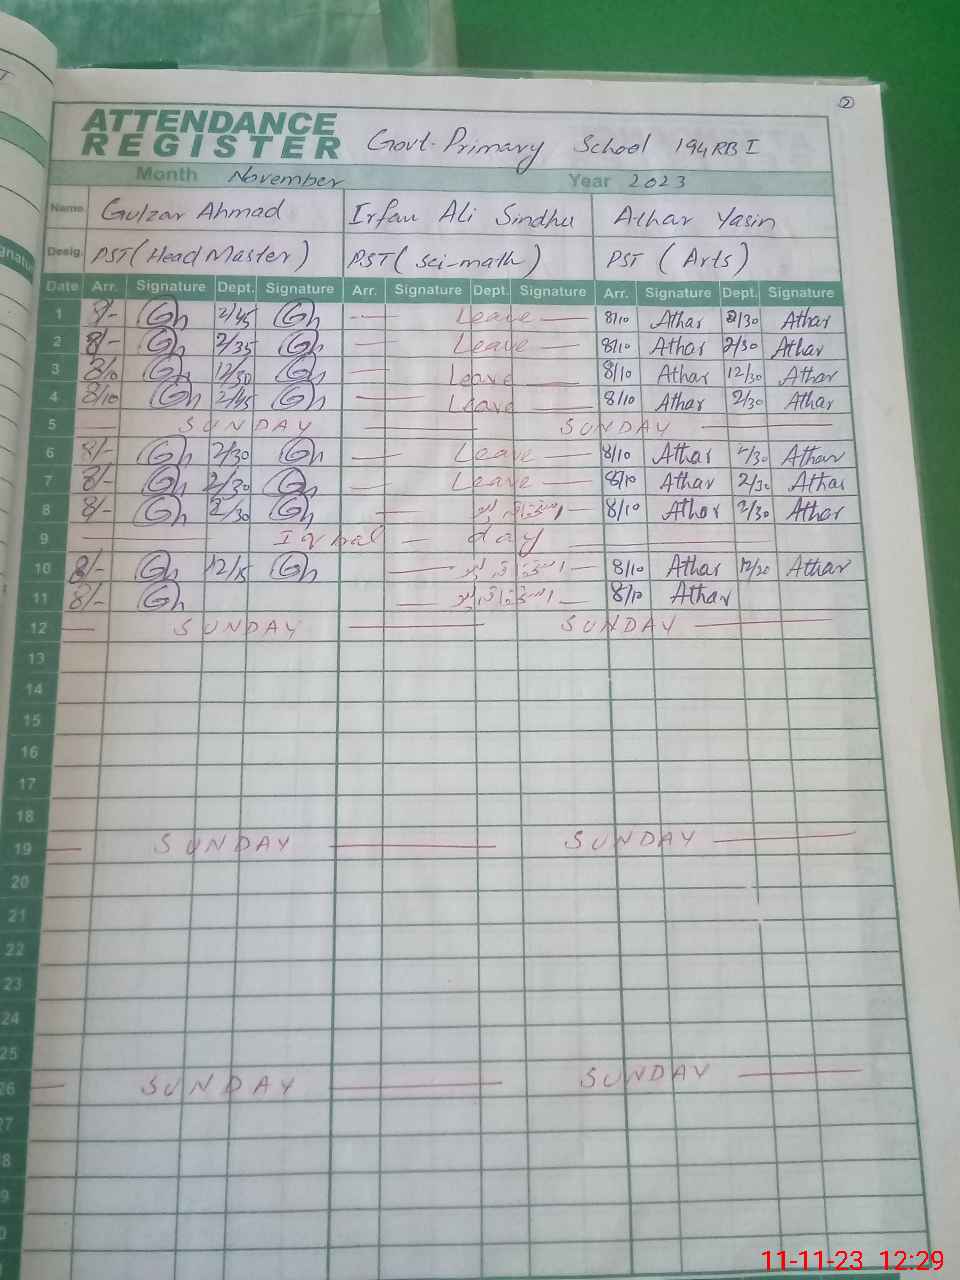 ②
ATTENDANCE
REGISTER Govt. Primary School 194 RB I
Month November Year 2023
Name Gulzar Ahmad Irfan Ali Sindhu Athar Yasin
Desig. PST (Head Master) PST (Sci-math) PST (Arts)
Date Arr. Signature Dept. Signature Arr. Signature Dept. Signature Arr. Signature Dept. Signature
1 8/- Gh 2/45 Gh Leave 8/10 Athar 2/30 Athar
2 8/- Gh 2/35 Gh Leave 8/10 Athar 2/30 Athar
3 Gh 12/30 Gh Leave 8/10 Athar 12/30 Athar
4 8/10 Gh 2/45 Gh Leave 8/10 Athar 2/30 Athar
5 SUNDAY SUNDAY
6 8/- Gh 2/30 Gh Leave 8/10 Athar 2/30 Athar
7 8/- Gh 2/30 Gh Leave 8/10 Athar 2/30 Athar
8 8/- Gh 2/30 Gh 8/10 Athar 2/30 Athar
9 Iqbal day
10 8/- Gh 12/15 Gh 8/10 Athar 12/20 Athar
11 8/- Gh 8/10 Athar
12 SUNDAY SUNDAY
13
14
15
16
17
18
19 SUNDAY SUNDAY
20
21
22
23
24
25
26 SUNDAY SUNDAY
27
8
9
0
11-11-23 12:29